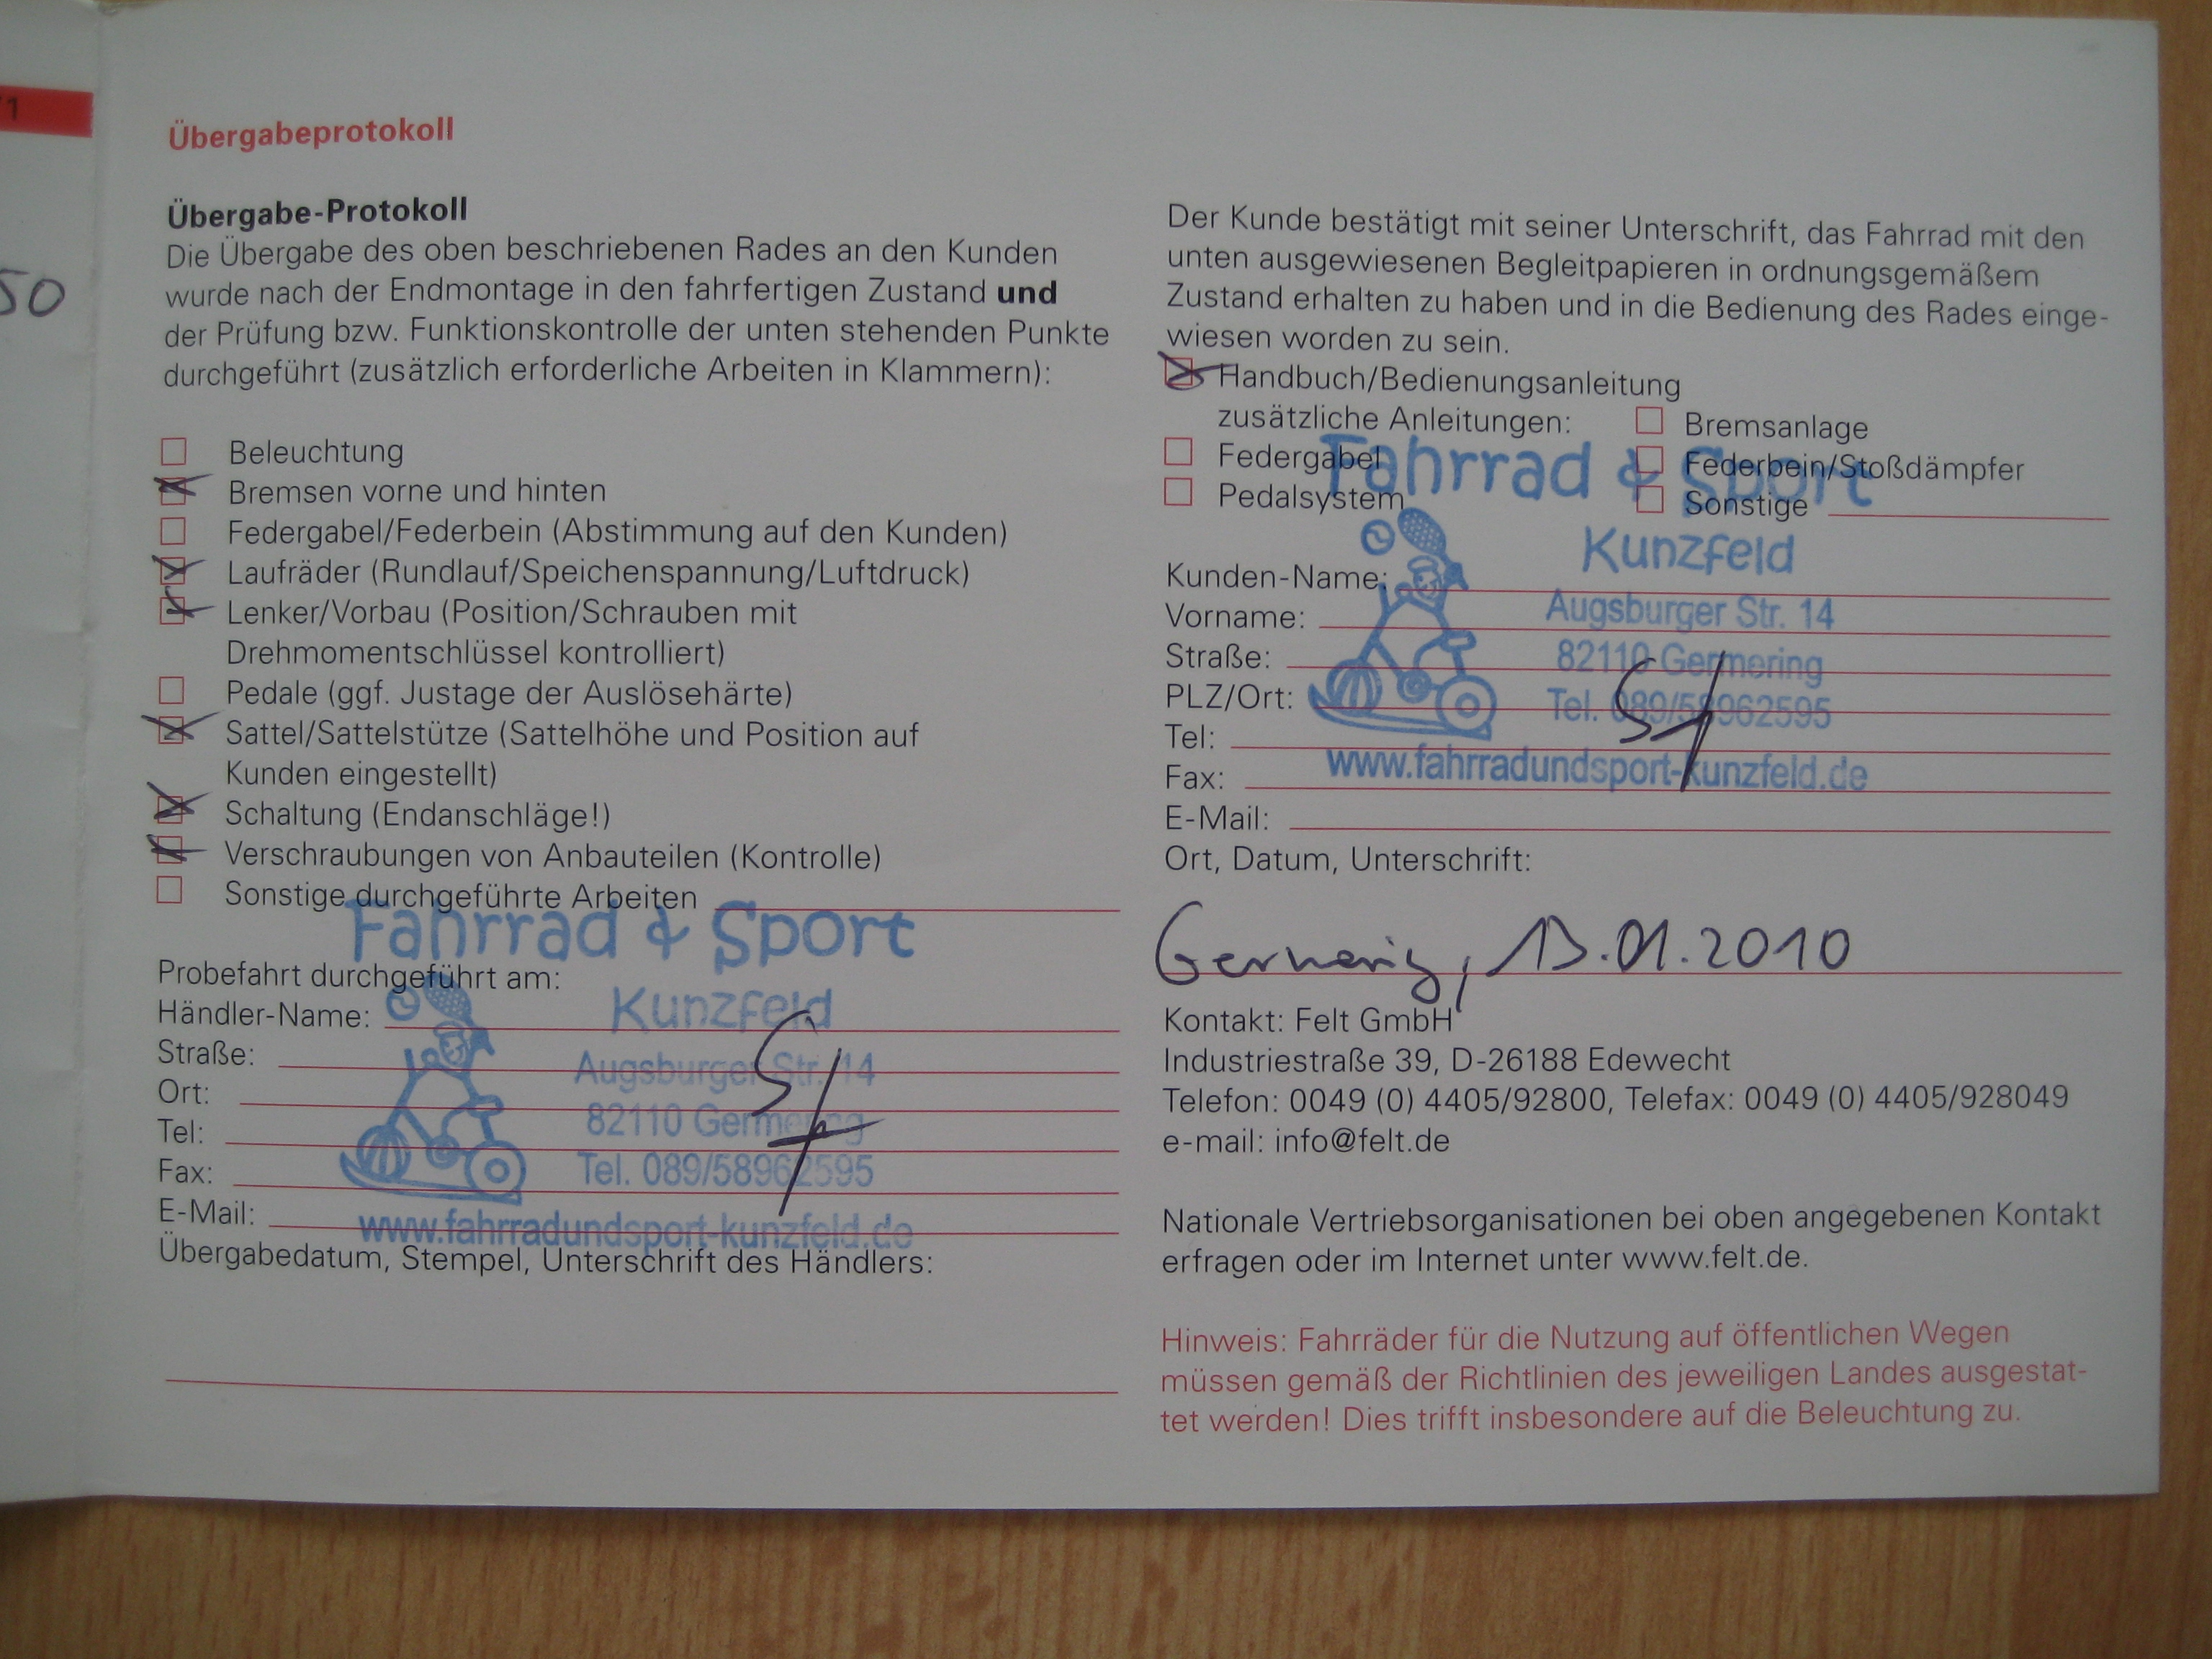 50
Übergabeprotokoll
Übergabe-Protokoll
Die Übergabe des oben beschriebenen Rades an den Kunden
wurde nach der Endmontage in den fahrfertigen Zustand und
der Prüfung bzw. Funktionskontrolle der unten stehenden Punkte
durchgeführt (zusätzlich erforderliche Arbeiten in Klammern):
Beleuchtung
Bremsen vorne und hinten
Federgabel/Federbein (Abstimmung auf den Kunden)
Laufräder (Rundlauf/Speichenspannung/Luftdruck)
Lenker/Vorbau (Position/Schrauben mit
Drehmomentschlüssel kontrolliert)
Pedale (ggf. Justage der Auslösehärte)
Sattel/Sattelstütze (Sattelhöhe und Position auf
Kunden eingestellt)
Schaltung (Endanschläge!)
Verschraubungen von Anbauteilen (Kontrolle)
Sonstige durchgeführte Arbeiten
Fahrrad & Sport
Kunzfeld
Augsburger Str. 14
82110 Germering
Tel. 089/58962595
www.fahrradundsport-kunzfeld.de
Probefahrt durchgeführt am:
Händler-Name:
Straße:
Ort:
Tel:
Fax:
E-Mail:
Übergabedatum, Stempel, Unterschrift des Händlers:
Der Kunde bestätigt mit seiner Unterschrift, das Fahrrad mit den
unten ausgewiesenen Begleitpapieren in ordnungsgemäßem
Zustand erhalten zu haben und in die Bedienung des Rades einge-
wiesen worden zu sein.
Handbuch/Bedienungsanleitung
zusätzliche Anleitungen:
Bremsanlage
Federgabel
Federbein/Stoßdämpfer
Pedalsystem
Sonstige
Fahrrad & Sport
Kunzfeld
Augsburger Str. 14
82110 Germering
Tel. 089/58962595
www.fahrradundsport-kunzfeld.de
Kunden-Name:
Vorname:
Straße:
PLZ/Ort:
Tel:
Fax:
E-Mail:
Ort, Datum, Unterschrift:
Germering, 13.01.2010
Kontakt: Felt GmbH
Industriestraße 39, D-26188 Edewecht
Telefon: 0049 (0) 4405/92800, Telefax: 0049 (0) 4405/928049
e-mail: info@felt.de
Nationale Vertriebsorganisationen bei oben angegebenen Kontakt
erfragen oder im Internet unter www.felt.de.
Hinweis: Fahrräder für die Nutzung auf öffentlichen Wegen
müssen gemäß der Richtlinien des jeweiligen Landes ausgestat-
tet werden! Dies trifft insbesondere auf die Beleuchtung zu.